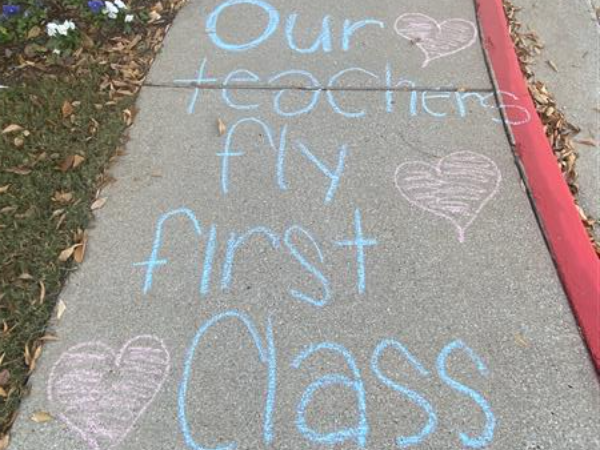 Our
teachers
fly
first
Class